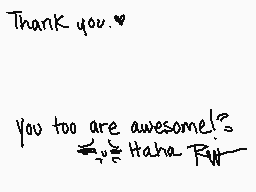 Thank you.♥
you too are awesome!
Haha